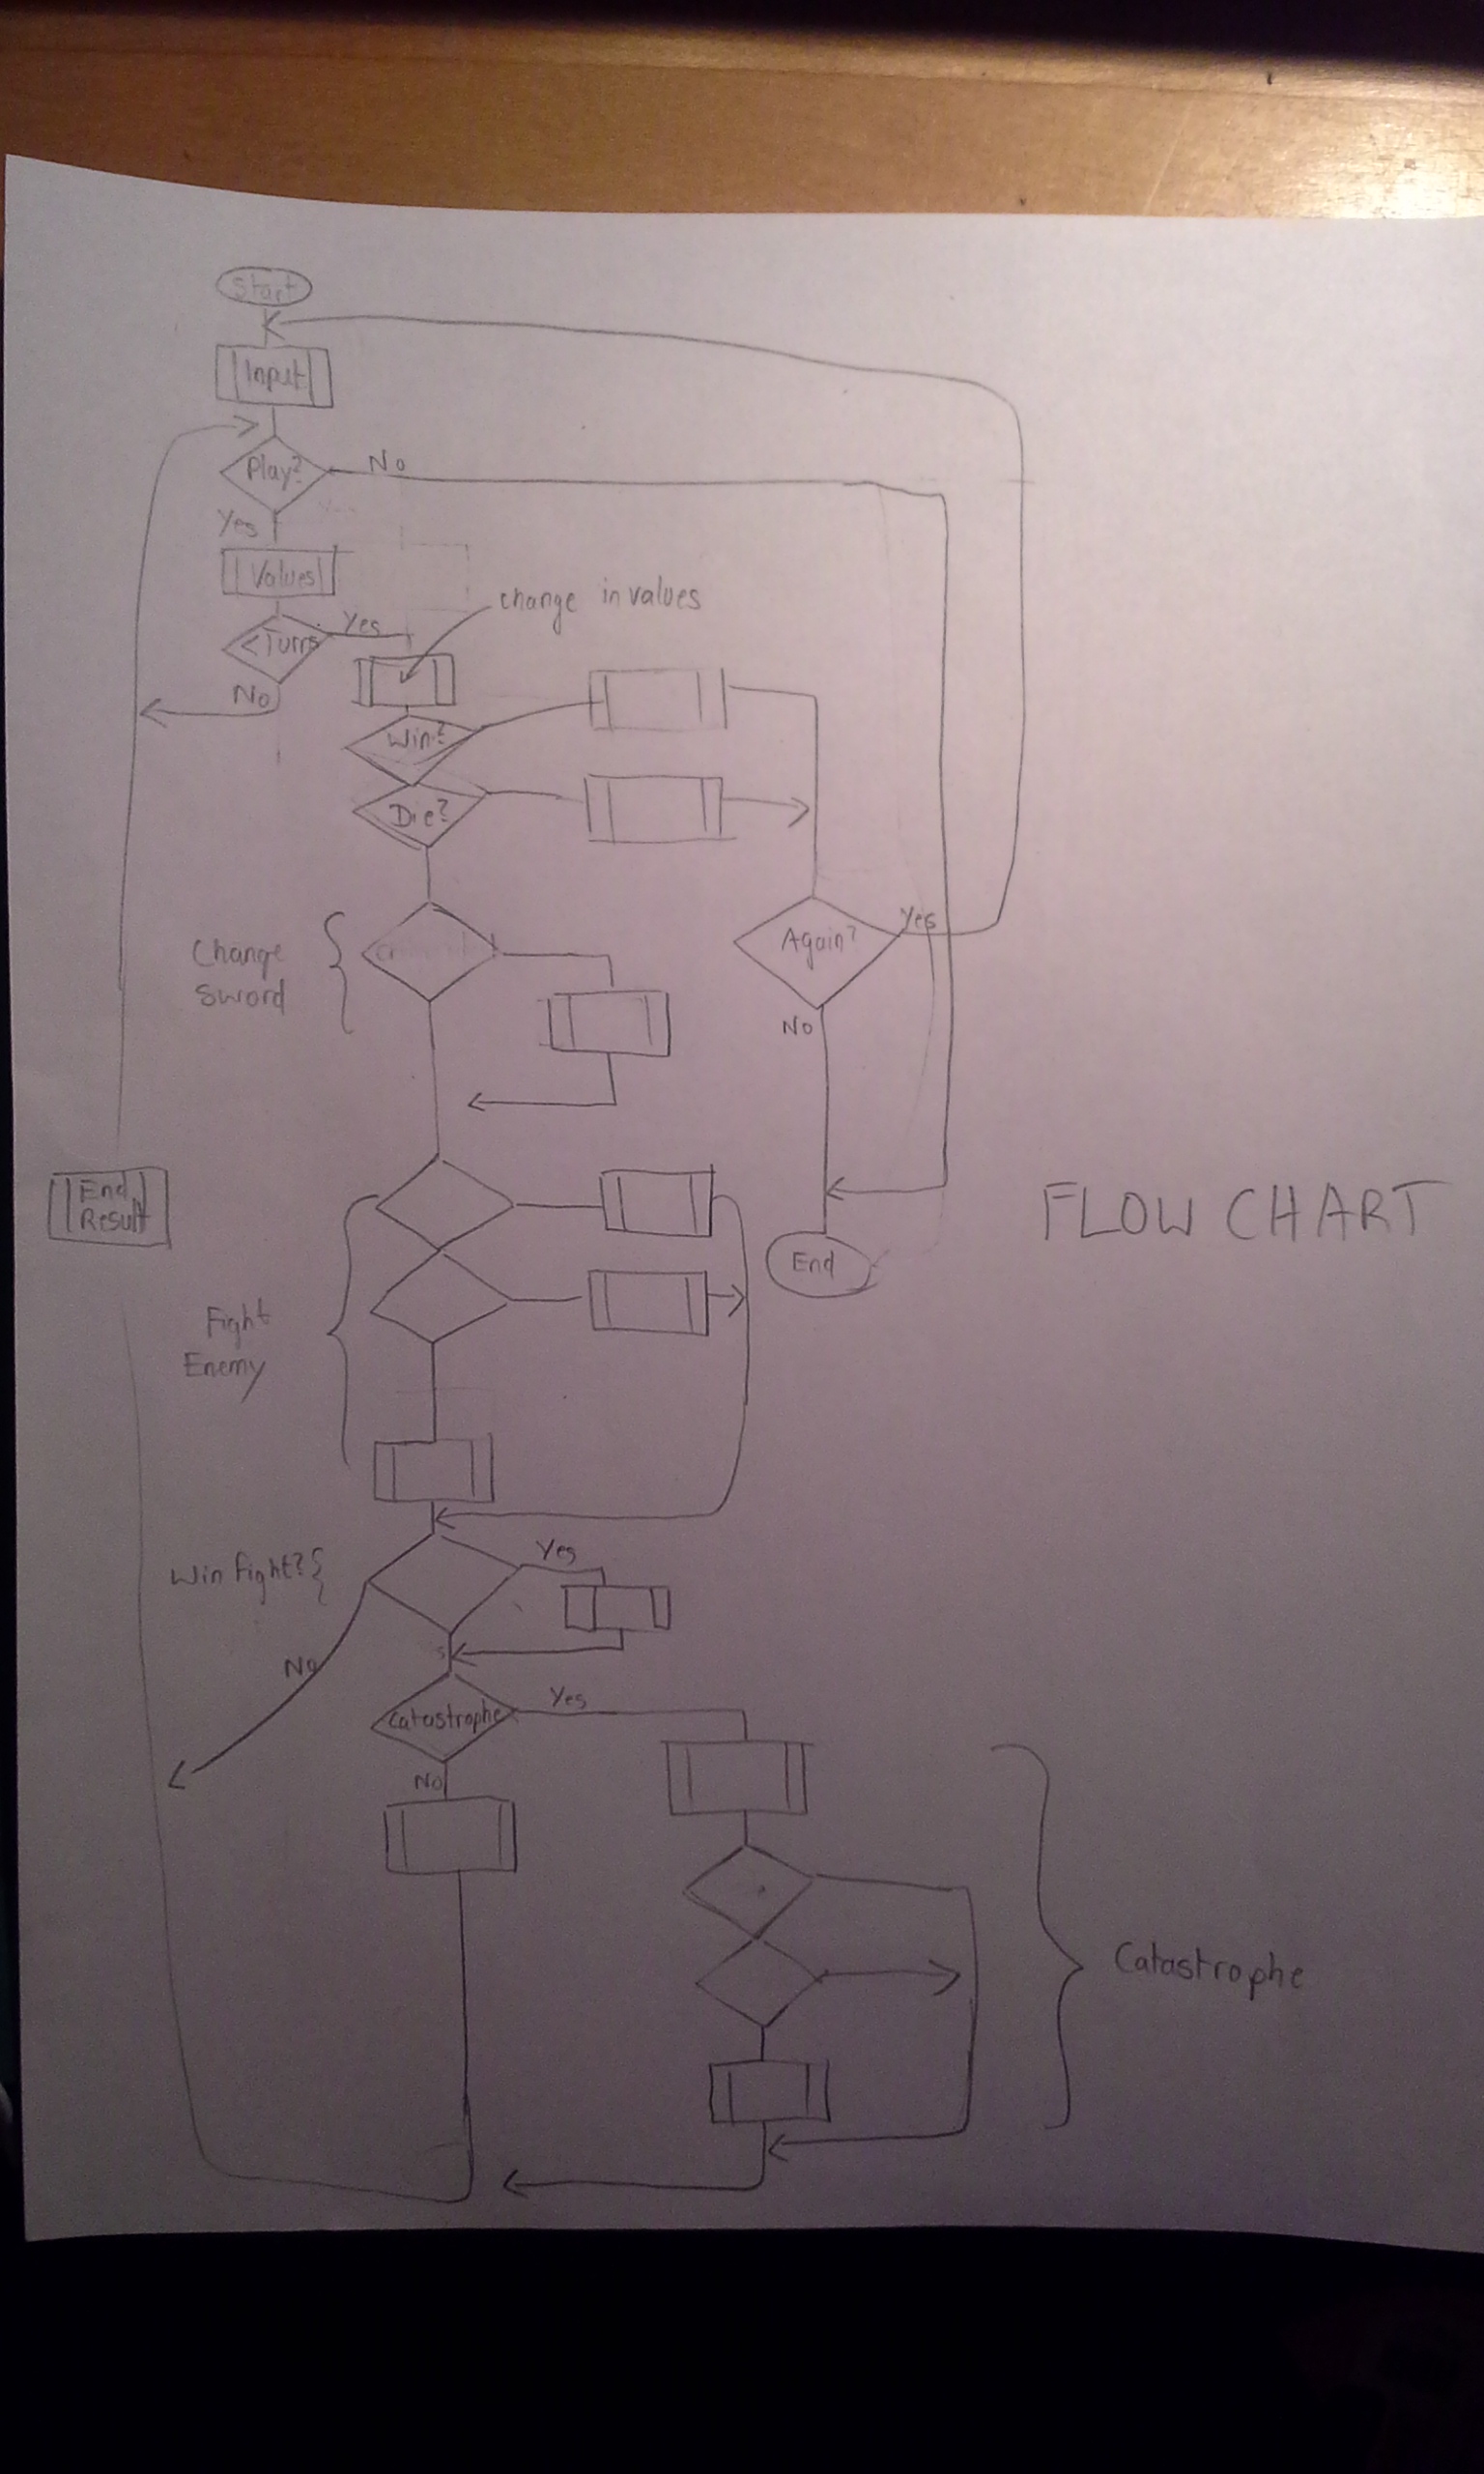 Start
Input
Play?
No
Yes
Values
<Turns
Yes
No
change in values
Win?
Die?
Change
Sword
Again?
Yes
No
End
Result
End
FLOW CHART
Fight
Enemy
Win Fight?
Yes
No
Catastrophe
Yes
No
Catastrophe